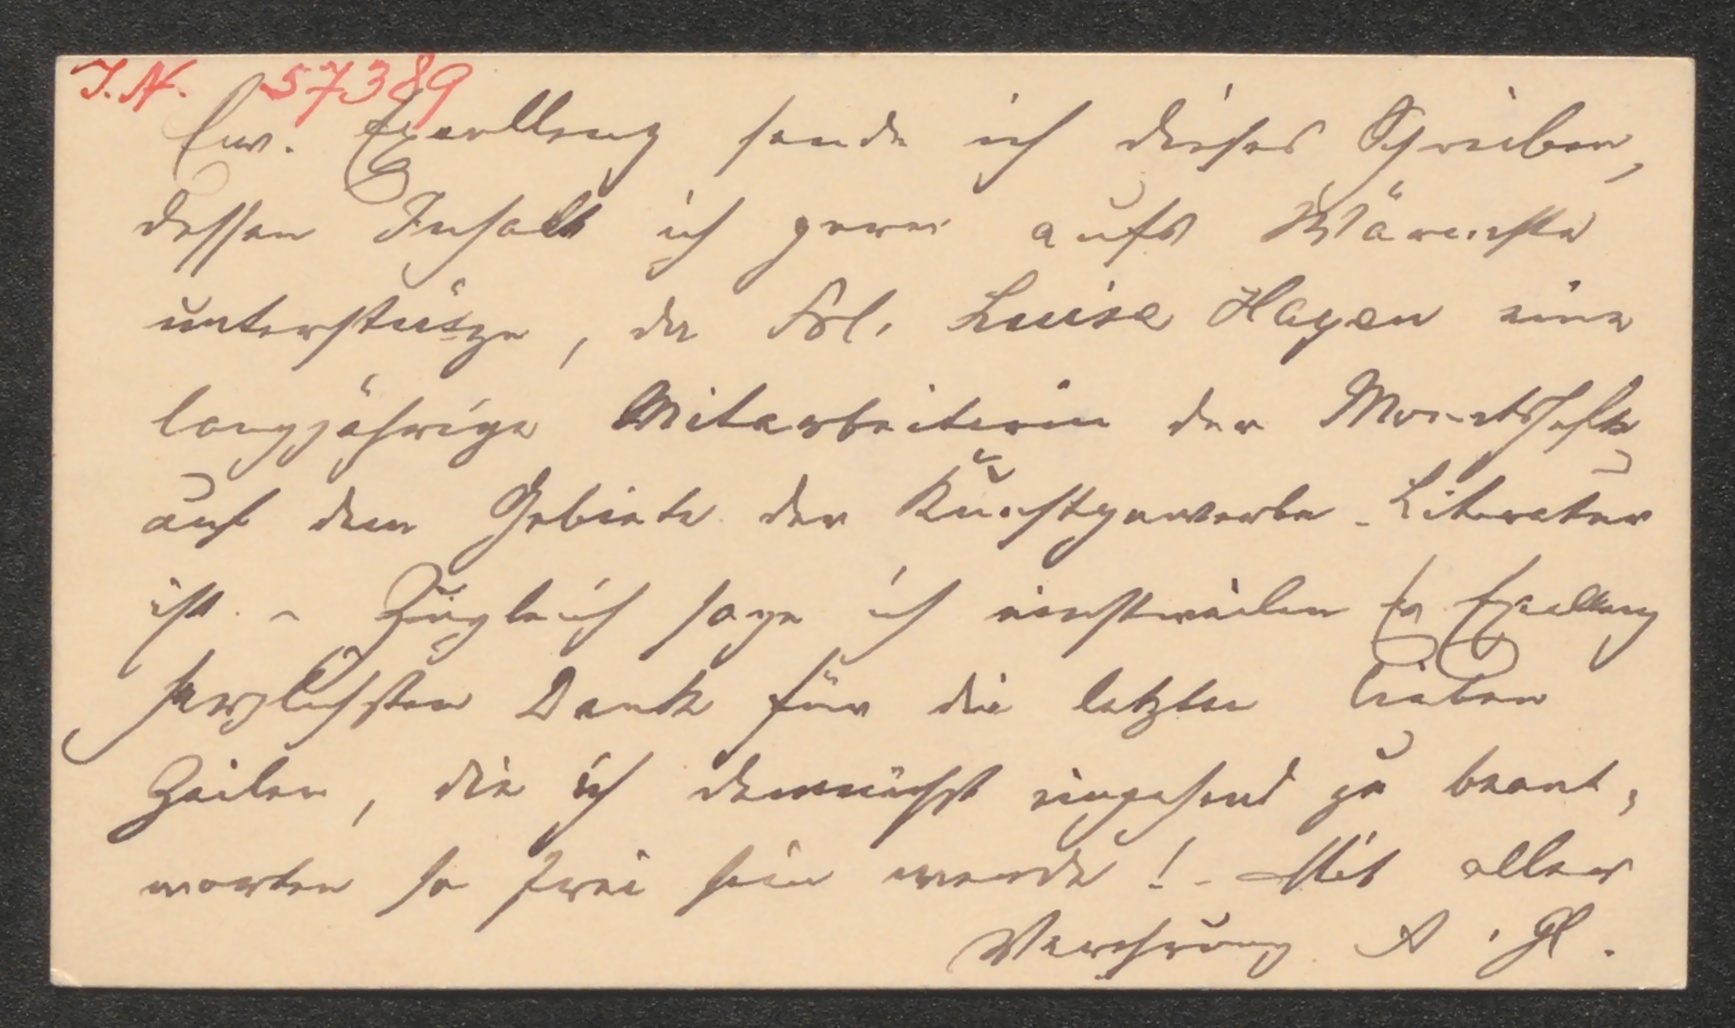 I.N. 57389
Ew. Excellenz sende ich dieses Schreiben,
dessen Inhalt ich gern aufs Wärmste
unterstütze, da Frl. Luise Hagen eine
langjährige Mitarbeiterin der Monatshefte
auf dem Gebiete der Kunstgewerbe-Literatur
ist. - Zugleich sage ich einstweilen Ew Excellenz
herzlichsten Dank für die letzten lieben
Zeilen, die ich demnächst eingehend zu beant-
worten so frei sein werde! - Mit aller
Verehrung A. Gl.